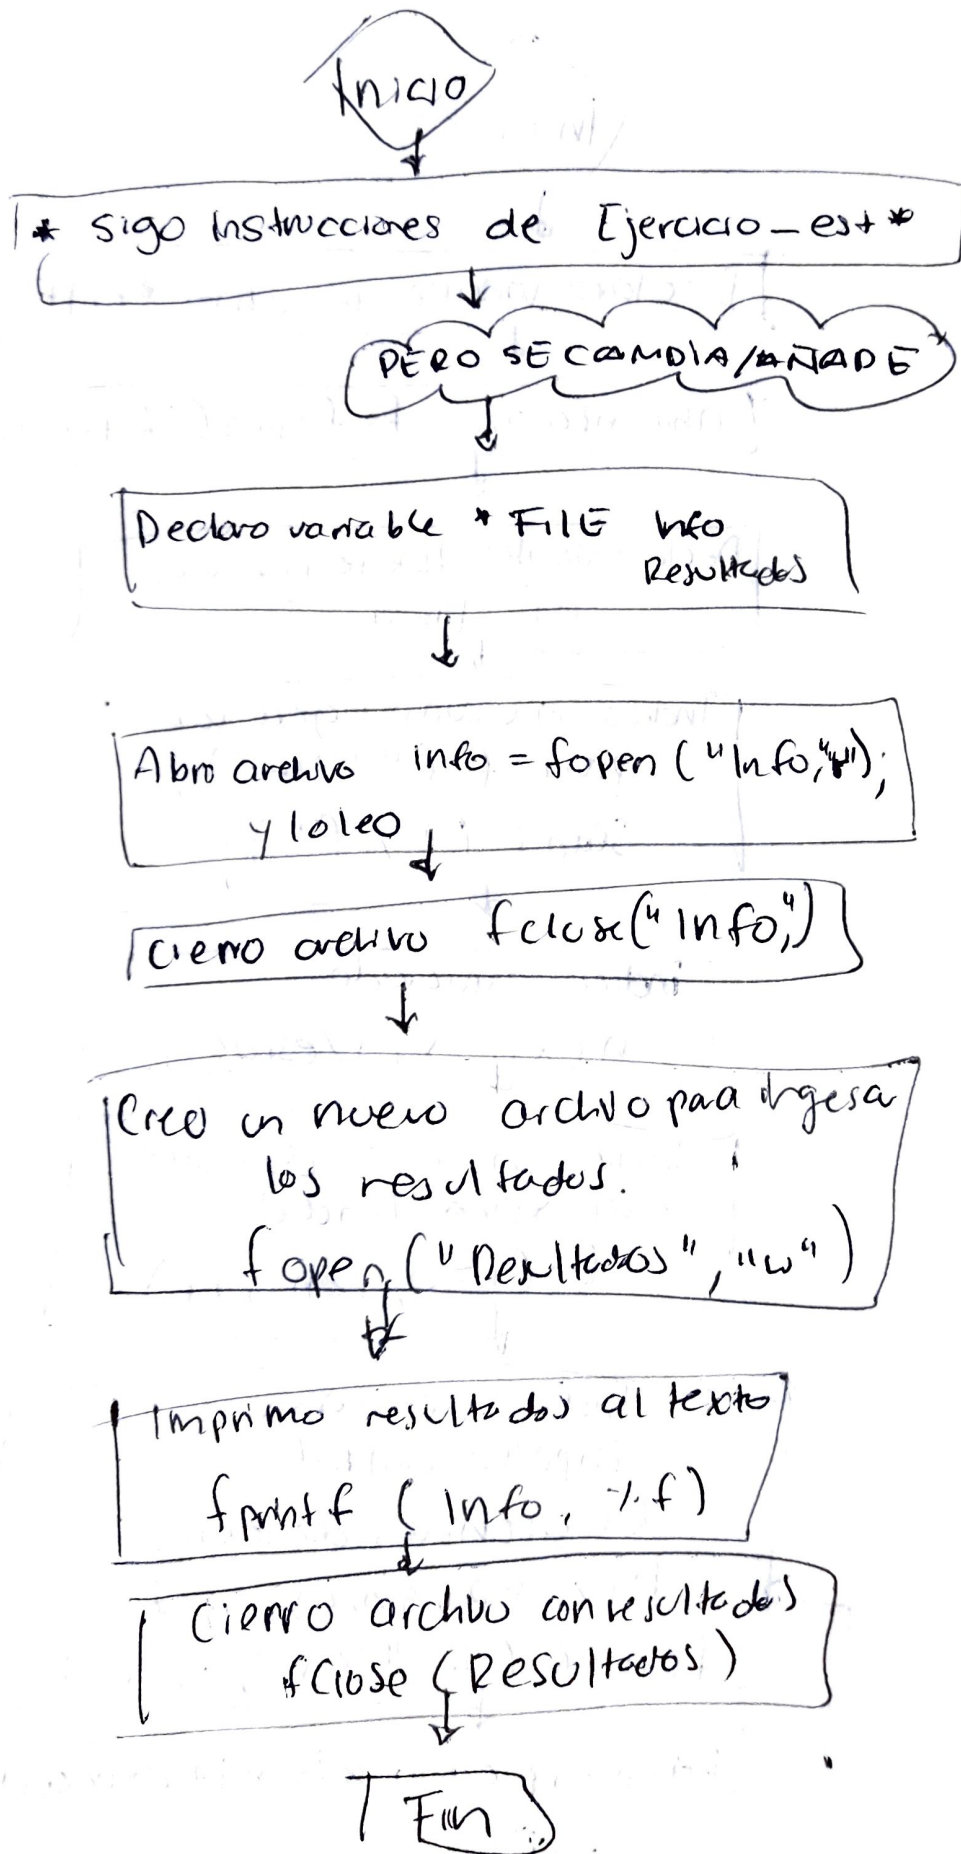 Inicio
* sigo instrucciones de Ejercicio_est *
PERO SE CAMBIA/AÑADE
Declaro variable * FILE Info
Resultados
Abro archivo info = fopen ("Info,"r");
y lo leo
Cierro archivo fclose("Info,")
Creo un nuevo archivo para ingesar
los resultados.
fopen("Resultados", "w")
Imprimo resultados al texto
fprintf (Info, %f)
Cierro archivo con resultados
fclose (Resultados)
Fin